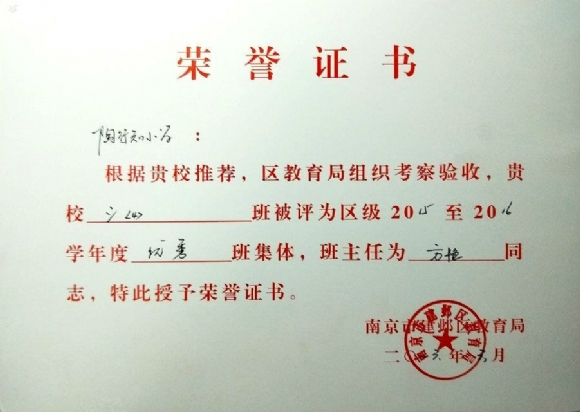 荣誉证书
陶行知小学:
根据贵校推荐，区教育局组织考察验收，贵
校 班被评为区级 2015 至 2016
学年度 优秀 班集体，班主任为 方艳 同
志，特此授予荣誉证书。
南京市建邺区教育局
二〇一六年六月